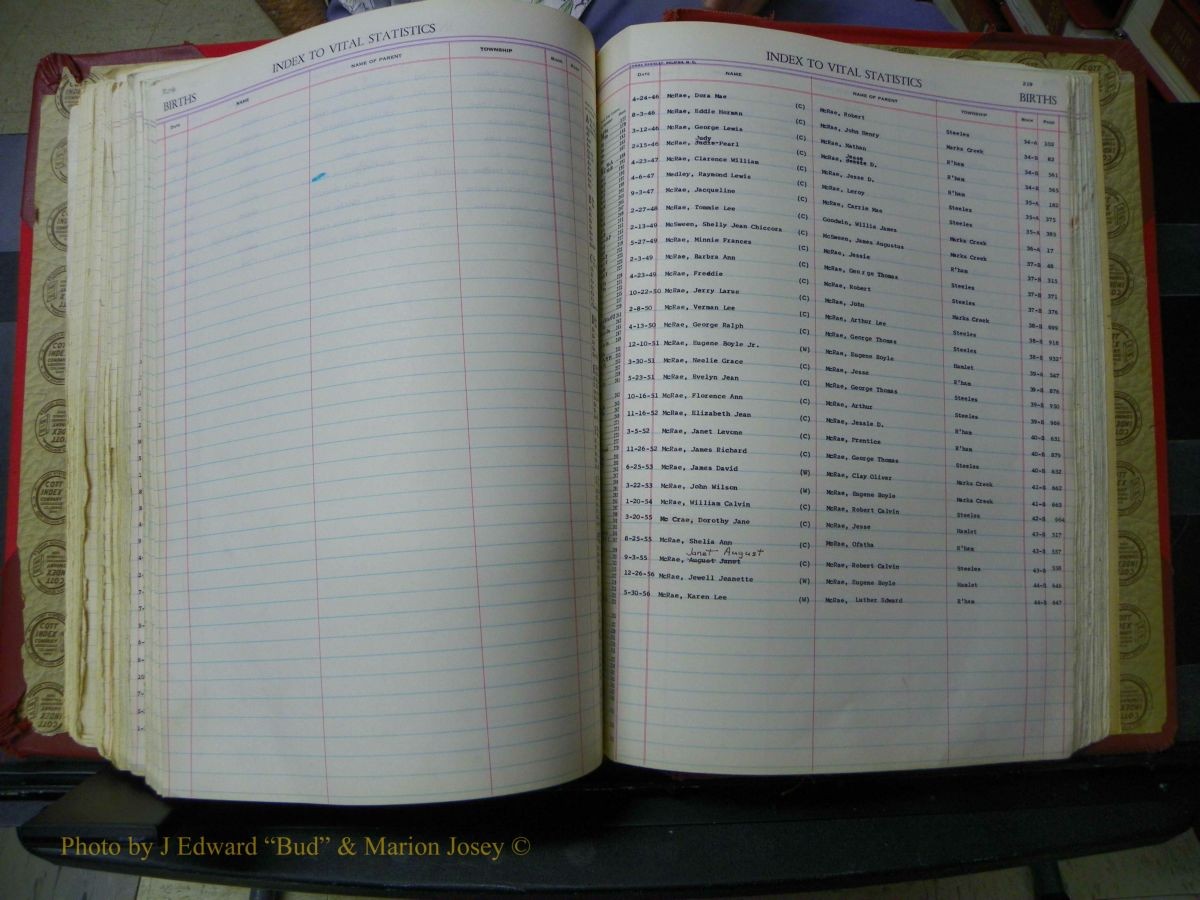 INDEX TO VITAL STATISTICS
BIRTHS
Date NAME NAME OF PARENT TOWNSHIP Book Page
INDEX TO VITAL STATISTICS 219
BIRTHS
Date NAME NAME OF PARENT TOWNSHIP Book Page
4-24-46 McRae, Dora Mae (C) McRae, Robert Steeles 34-A 102
8-3-46 McRae, Eddie Herman (C) McRae, John Henry Marks Creek 34-B 82
3-12-46 McRae, George Lewis (C) McRae, Nathan R'ham 34-B 561
Judy Jesse
2-15-46 McRae, Judie Pearl (C) McRae, Bessie D. R'ham 34-B 565
4-23-47 McRae, Clarence William (C) McRae, Jesse D. Steeles 35-A 182
4-6-47 Medley, Raymond Lewis (C) McRae, Leroy Steeles 35-A 375
9-3-47 McRae, Jacqueline (C) McRae, Carrie Mae Marks Creek 35-A 383
2-27-48 McRae, Tommie Lee (C) Goodwin, Willis James Marks Creek 36-A 17
2-13-49 McSween, Shelly Jean Chiccora (C) McSween, James Augustus R'ham 37-B 48
5-27-49 McRae, Minnie Frances (C) McRae, Jessie Steeles 37-B 315
2-3-49 McRae, Barbra Ann (C) McRae, George Thomas Steeles 37-B 371
4-23-49 McRae, Freddie (C) McRae, Robert Marks Creek 37-B 376
10-22-50 McRae, Jerry Larue (C) McRae, John Steeles 38-B 899
2-8-50 McRae, Verman Lee (C) McRae, Arthur Lee Steeles 38-B 918
4-13-50 McRae, George Ralph (C) McRae, George Thomas Hamlet 38-B 932
12-10-51 McRae, Eugene Boyle Jr. (W) McRae, Eugene Boyle R'ham 39-A 547
3-30-51 McRae, Neelie Grace (C) McRae, Jesse Steeles 39-B 876
5-23-51 McRae, Evelyn Jean (C) McRae, George Thomas Steeles 39-B 930
10-16-51 McRae, Florence Ann (C) McRae, Arthur R'ham 39-B 966
11-16-52 McRae, Elizabeth Jean (C) McRae, Jessie D. R'ham 40-B 631
3-5-52 McRae, Janet Levone (C) McRae, Prentice Steeles 40-B 879
11-26-52 McRae, James Richard (C) McRae, George Thomas Marks Creek 40-B 632
6-25-53 McRae, James David (W) McRae, Clay Oliver Marks Creek 41-B 662
3-22-53 McRae, John Wilson (W) McRae, Eugene Boyle Steeles 41-B 663
1-20-54 McRae, William Calvin (C) McRae, Robert Calvin Hamlet 42-B 604
3-20-55 Mc Crae, Dorothy Jane (C) McRae, Jesse R'ham 43-B 317
6-25-55 McRae, Shelia Ann (C) McRae, Ofatha Steeles 43-B 557
Janet August
9-3-55 McRae, August Janet (C) McRae, Robert Calvin Hamlet 43-B 558
12-26-56 McRae, Jewell Jeanette (W) McRae, Eugene Boyle R'ham 44-B 646
5-30-56 McRae, Karen Lee (W) McRae, Luther Edward 44-B 647
COTT INDEX COMPANY
Photo by J Edward “Bud” & Marion Josey ©